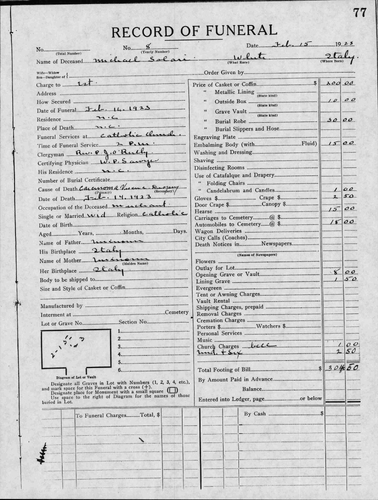 77
RECORD OF FUNERAL
No. No. 8 Date Feb. 15 1923
(Total Number) (Yearly Number)
Name of Deceased Michael White Italy.
(What Race) (Where Born)
Charge to Est
Address
How Secured
Date of Funeral Feb. 16. 1923
Residence N.C.
Place of Death N.C.
Funeral Services at Catholic Church.
Time of Service 2 P.M.
Clergyman Rev. P.J.
Certifying Physician W.P.
His Residence N.C.
Number of Burial Certificate
Cause of Death
Date of Death Feb. 14. 1923
Occupation of Deceased Merchant
Single or Married Wid Religion Catholic
Date of Birth
Aged Years, Months, Days.
Name of Father Unknown
His Birthplace Italy
Name of Mother Unknown
(Maiden Name)
Her Birthplace Italy
Body to be shipped to
Size and Style of Casket or Coffin
Manufactured by
Interment at Cemetery
Lot or Grave No. Section No.
1.
2.
3.
4.
5.
6.
Diagram of Lot or Vault
Designate all Graves in Lot with Numbers (1, 2, 3, 4, etc.),
and mark space for this Funeral with a cross (+).
Designate place for Monument with a small square
Use space to the right of Diagram for the names of those
buried in Lot.
To Funeral Charges Total, $
Order Given by
Price of Casket or Coffin $ 200 00
" Metallic Lining
" Outside Box 10 00
" Grave Vault
" Burial Robe 30 00
" Burial Slippers and Hose
Engraving Plate
Embalming Body (with Fluid) 15 00
Washing and Dressing
Shaving
Disinfecting Rooms
Use of Catafalque and Drapery
" Folding Chairs
" Candelabrum and Candles 1 00
Gloves $ Crape $ 2 50
Door Crape $ Canopy $
Hearse 15 00
Carriages to Cemetery @ $
Automobiles to Cemetery @ $ 18 00
Wagon Deliveries
City Calls (Coaches)
Death Notices in Newspapers
(Names of Newspapers)
Flowers
Outlay for Lot
Opening Grave or Vault 8 00
Lining Grave 1 50
Evergreen
Tent or Awning Charges
Vault Rental
Shipping Charges, prepaid
Removal Charges
Cremation Charges
Porters $ Watchers $
Personal Services
Music
Church Charges bell 1 00
2 50
Total Footing of Bill $ 304 50
By Amount Paid in Advance
Balance
Entered into Ledger, page or below
By Cash $